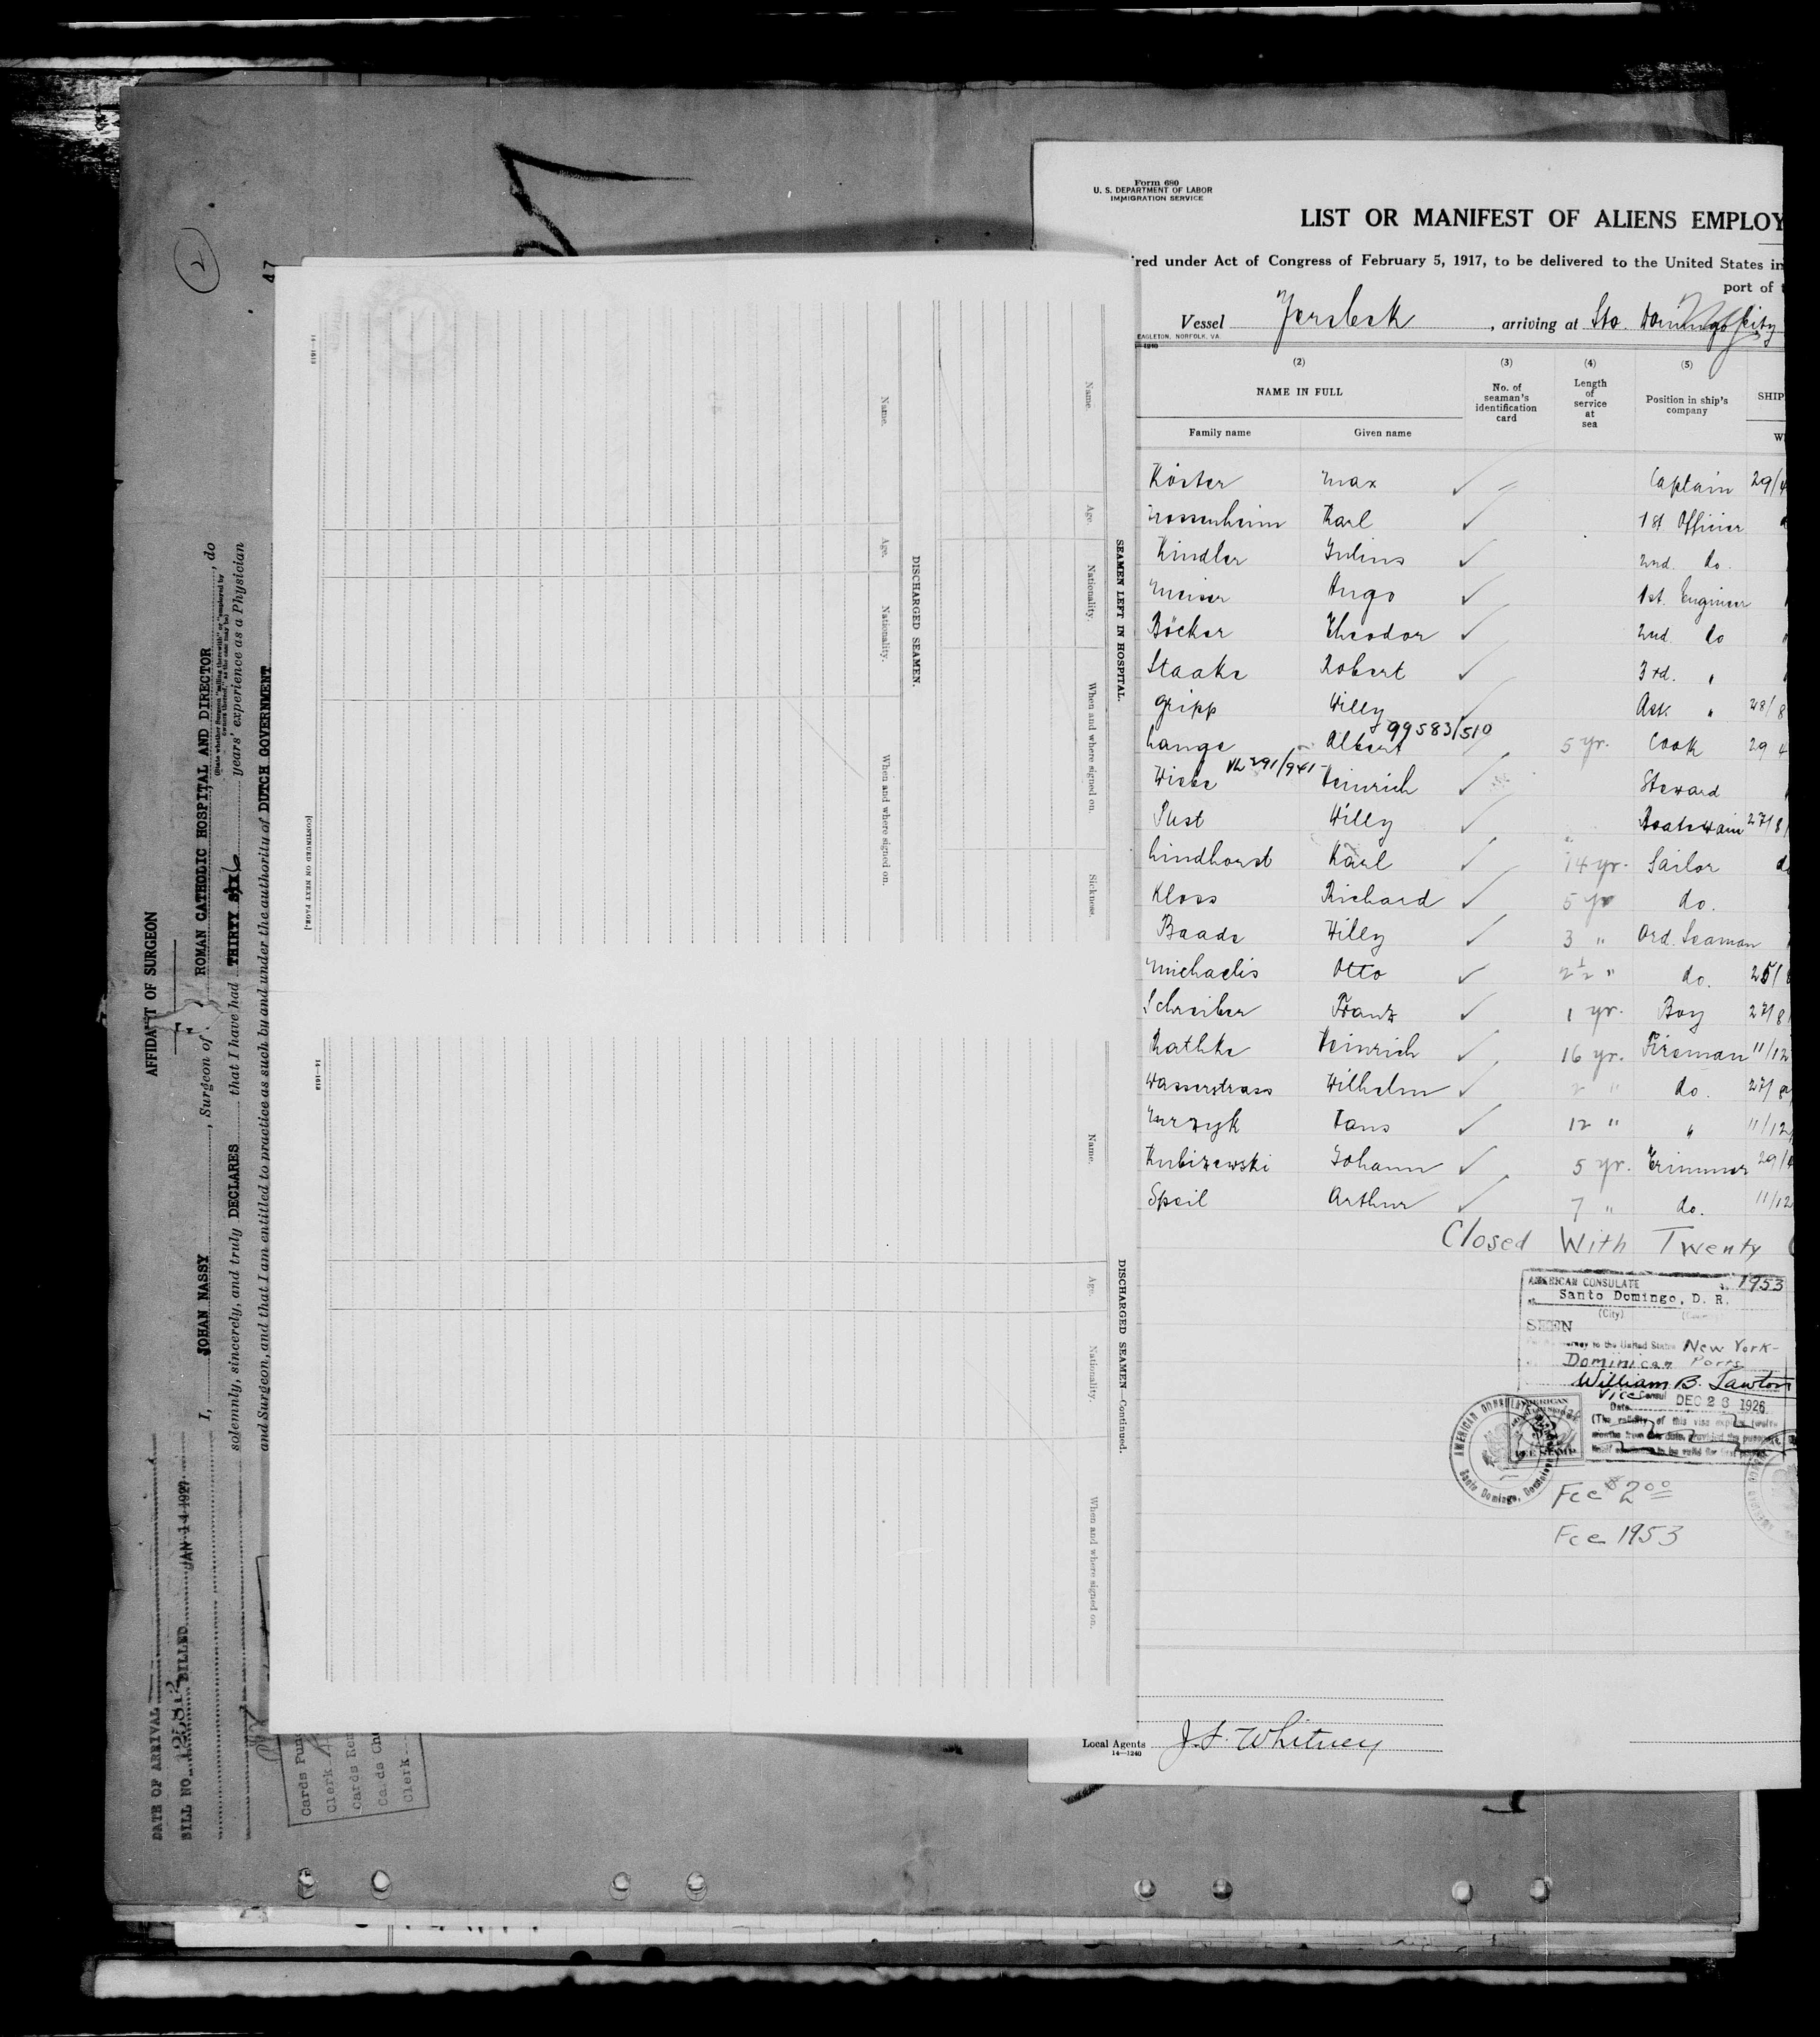 2
AFFIDAVIT OF SURGEON
I, JOHAN NASSY, Surgeon of ROMAN CATHOLIC HOSPITAL AND DIRECTOR, do
(State whether Surgeon "sailing therewith" or "employed by owners thereof," as the case may be)
solemnly, sincerely, and truly DECLARES that I have had THIRTY SIX years' experience as a Physician
and Surgeon, and that I am entitled to practice as such by and under the authority of DUTCH GOVERNMENT
47
DATE OF ARRIVAL
BILL NO. 125812 BILLED JAN 14 1927
Cards Pun
Clerk
Cards Rem
Cards Che
Clerk
SEAMEN LEFT IN HOSPITAL.
Name. Age. Nationality. When and where signed on. Sickness.
DISCHARGED SEAMEN.
Name. Age. Nationality. When and where signed on.
[CONTINUED ON NEXT PAGE.]
14-1613
DISCHARGED SEAMEN—Continued.
Name. Age. Nationality. When and where signed on.
14-1613
Form 680
U. S. DEPARTMENT OF LABOR
IMMIGRATION SERVICE
LIST OR MANIFEST OF ALIENS EMPLOY
red under Act of Congress of February 5, 1917, to be delivered to the United States in
port of
Vessel Jersbek, arriving at Sto. Domingo City
EAGLETON, NORFOLK, VA.
(2) (3) (4) (5)
NAME IN FULL No. of seaman's identification card Length of service at sea Position in ship's company SHIP
Family name Given name
Köster Max Captain 29/4
Karl 1st Officier
Kindler Julius 2nd. do.
Meiser Hugo 1st. Engineer
Böcker Theodor 2nd do
Staake Robert 3rd. "
Gripp Willy Ass. " 28/8
99583/510
Lange Albert 5 yr. Cook 29 4
Wiebe Heinrich Steward
Pust Willy Boatswain 27/8
Lindhorst Karl 14 yr. Sailor
Kloss Richard 5 yr do.
Baade Willy 3 " Ord. Seaman
Michaelis Otto 2½ " do. 25/
Schreiber Franz 1 yr. Boy 27/8
Rathke Heinrich 16 yr. Fireman 11/12
Wasserstrass Wilhelm 2 " do. 27/8
Hans 12 " " 11/12
Kubizewski Johann 5 yr. Trimmer 29/4
Speil Arthur 7 " do. 11/12
Closed With Twenty
AMERICAN CONSULATE 1953
at Santo Domingo, D. R.
(City)
SEEN
journey to the United States New York-
Dominican Ports
William B. Lawton
Vice Consul
Date DEC 23 1926
(The validity of this visa expires twelve
months from this date, provided the passport
AMERICAN CONSULATE
Santo Domingo, Dominican
FEE STAMP
Fee $2.00
Fee 1953
Local Agents J. F. Whitney
14-1240